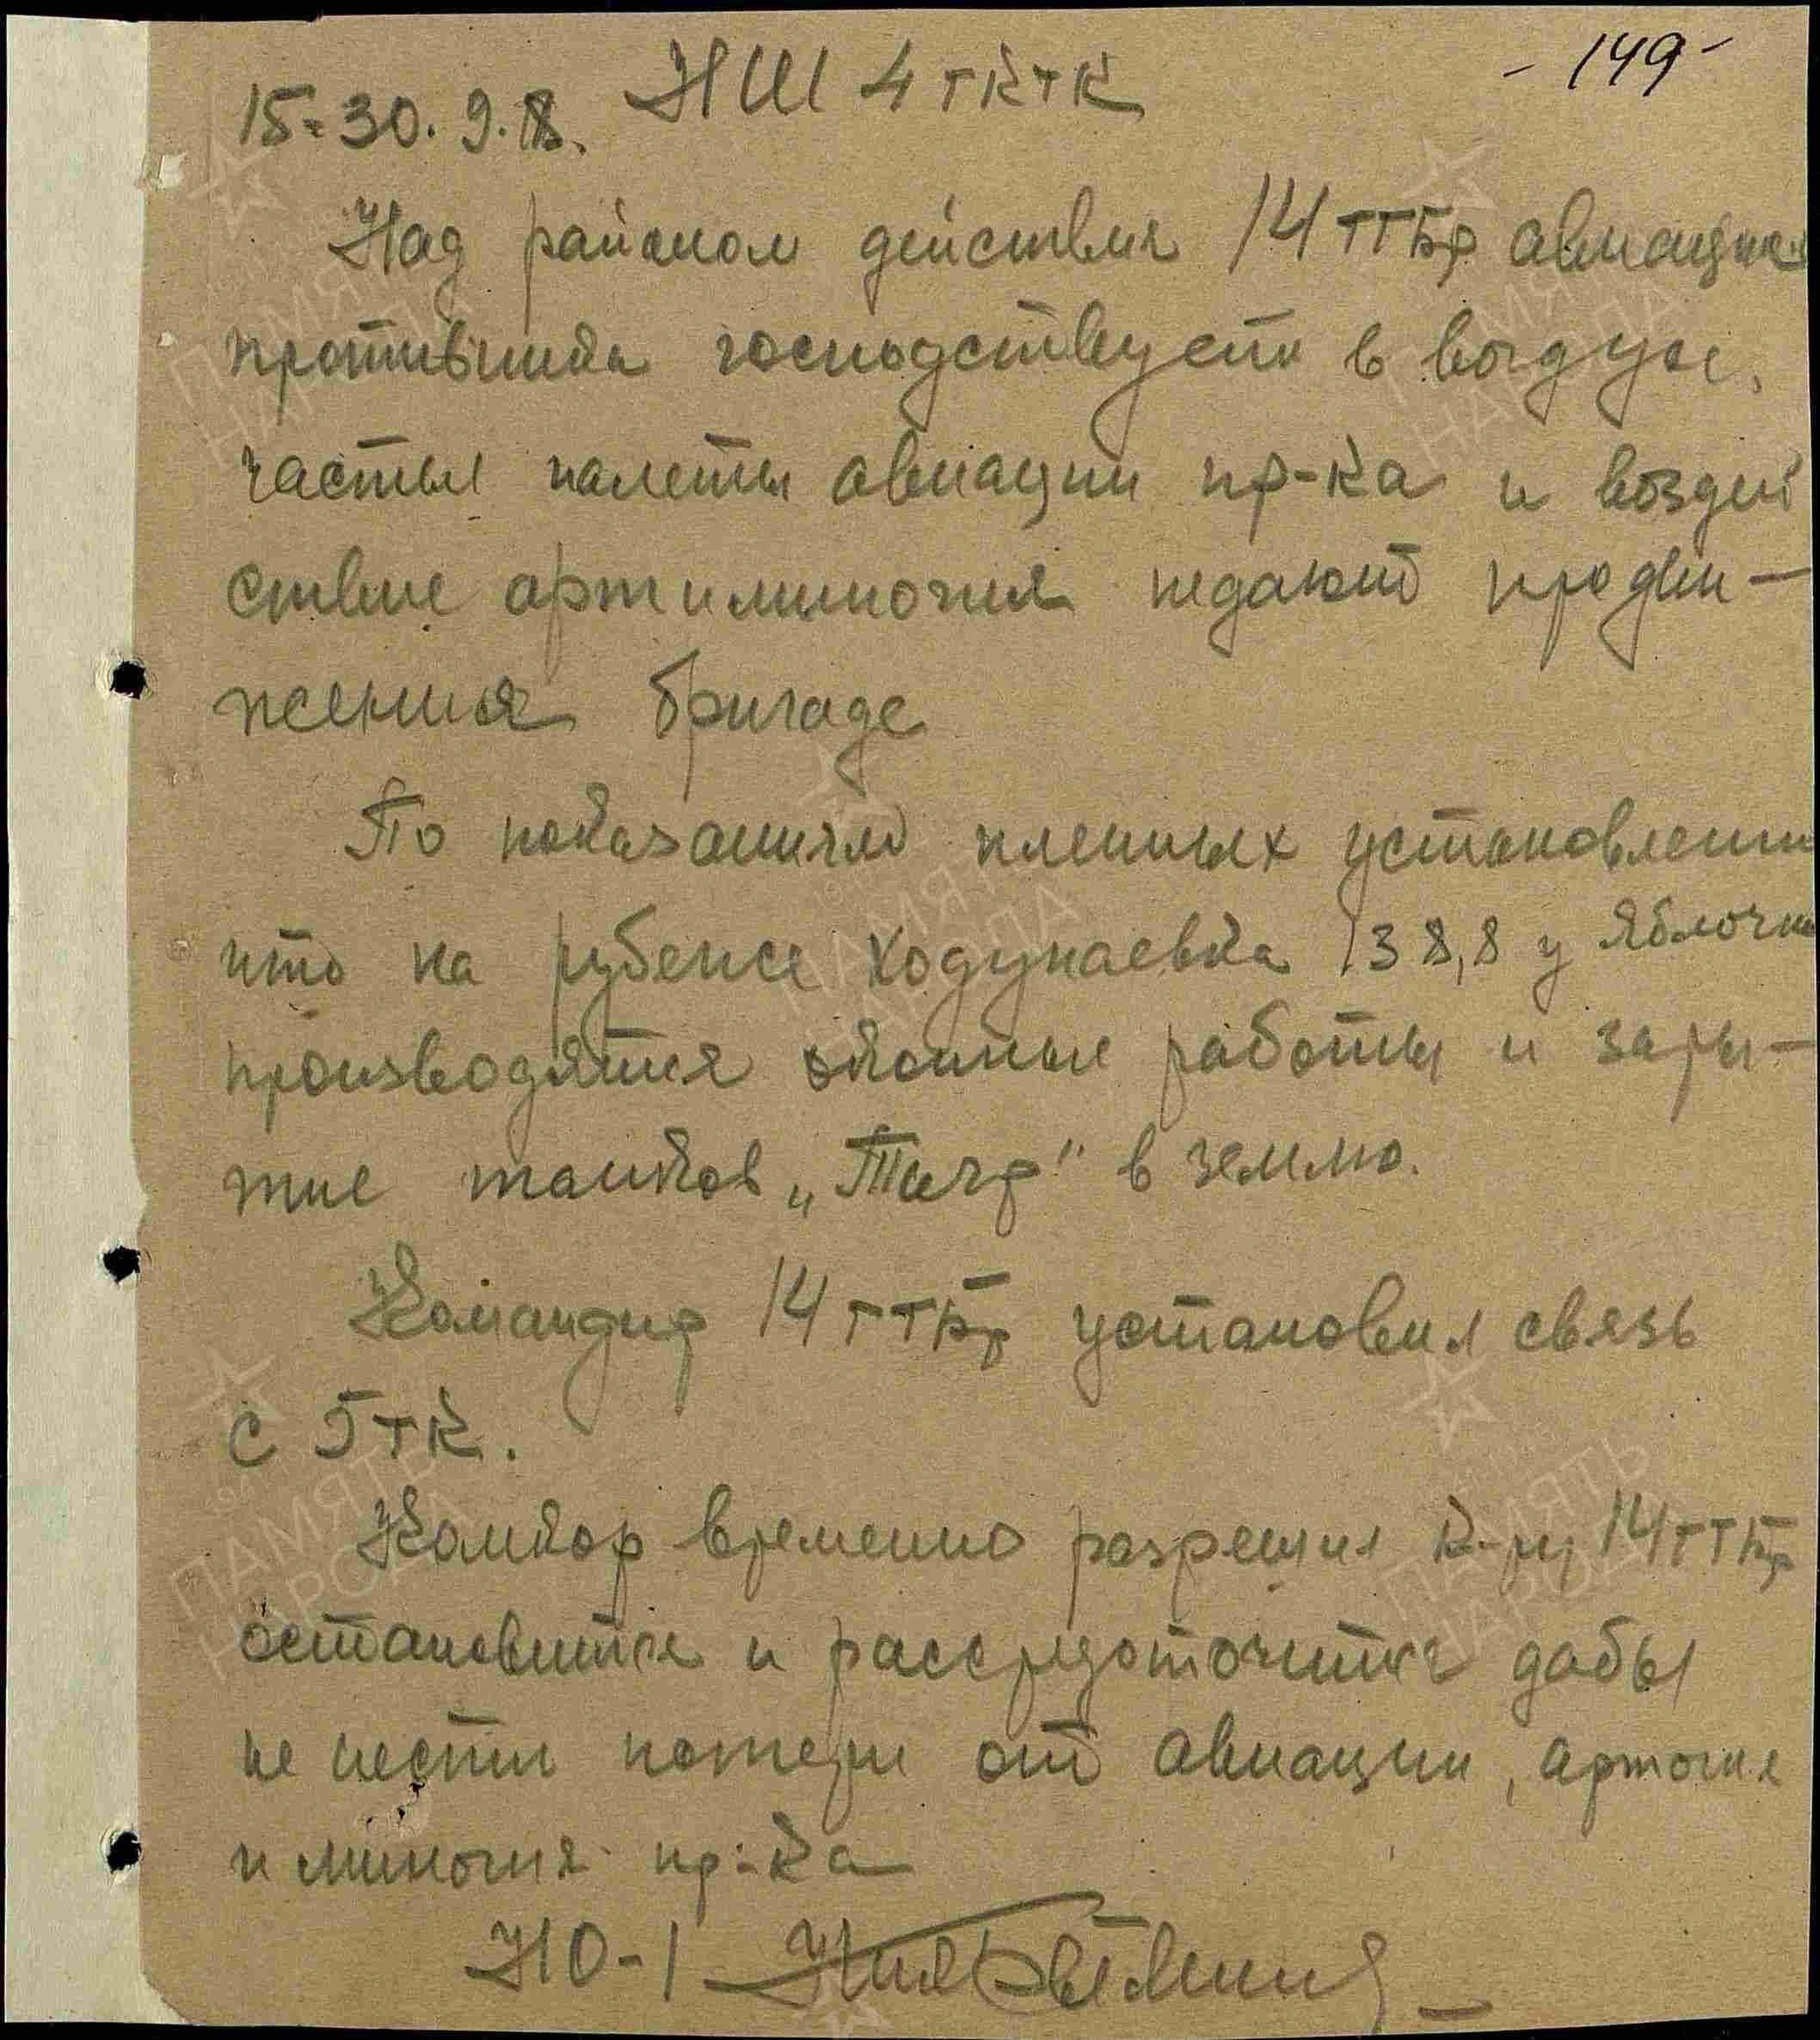 - 149 -
НШ 4 гктк
15-30. 9.8.
Над районом действия 14 гтбр авиация
противника господствует в воздухе,
частые налеты авиации пр-ка и воздей
ствие артиминогня недают продви-
жения бригаде
По показаниям пленных установлено
что на рубеже Ходунаевка 138,8 у Яблочн
производятся окопные работы и зары-
тие танков „Тигр" в землю.
Командир 14 гтбр установил связь
с 5 тк.
Комкор временно разрешил к-ру 14 гтбр
остановится и рассредоточится дабы
не нести потери от авиации, артогня
и миногня пр-ка
НО-1
ПАМЯТЬ
НАРОДА